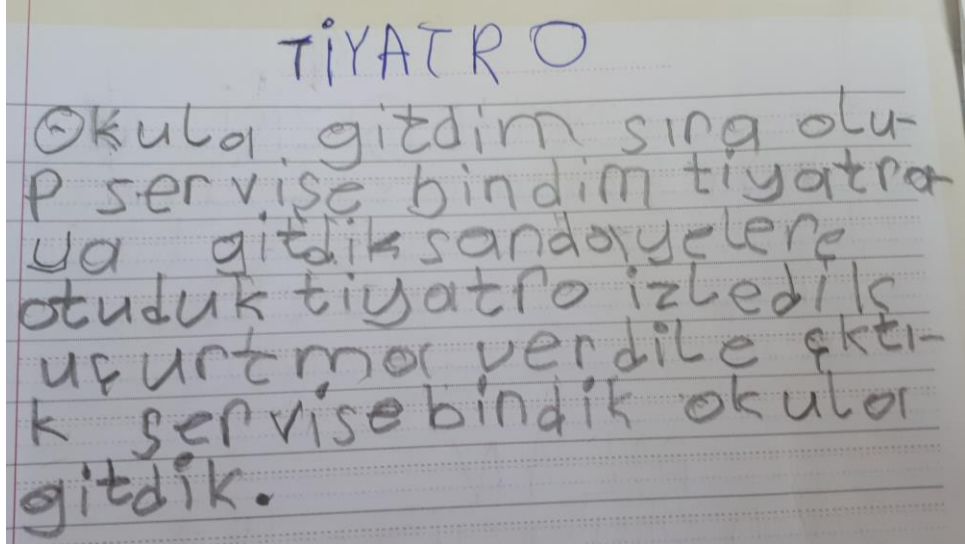 TİYATRO
Okula gitdim sıra olu-
p servise bindim tiyatra
ya gitdik sandayelere
otuduk tiyatro izledik
uçurtma verdile çktı-
k servise bindik okula
gitdik.